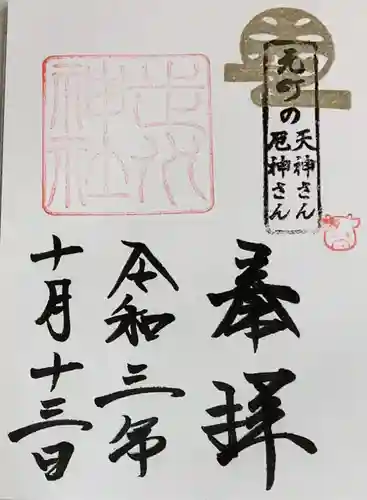 元町の
天神さん
厄神さん
奉拝
令和三年
十月十三日
走水
神社